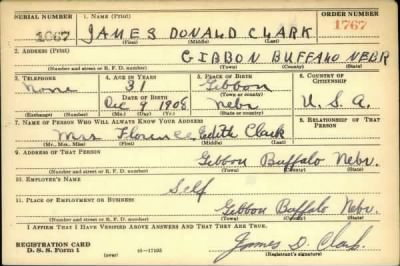 SERIAL NUMBER 1. NAME (Print) ORDER NUMBER
1067 JAMES DONALD CLARK 1767
(First) (Middle) (Last)
2. ADDRESS (Print)
GIBBON BUFFALO NEBR
(Number and street or R. F. D. number) (Town) (County) (State)
3. TELEPHONE 4. AGE IN YEARS 5. PLACE OF BIRTH 6. COUNTRY OF CITIZENSHIP
None 31 Gibbon
DATE OF BIRTH (Town or county)
Dec 9 1908 Nebr U.S.A.
(Exchange) (Number) (Mo.) (Day) (Yr.) (State or country)
7. NAME OF PERSON WHO WILL ALWAYS KNOW YOUR ADDRESS 8. RELATIONSHIP OF THAT PERSON
Mrs Florence Edith Clark
(Mr., Mrs., Miss) (First) (Middle) (Last)
9. ADDRESS OF THAT PERSON
Gibbon Buffalo Nebr.
(Number and street or R. F. D. number) (Town) (County) (State)
10. EMPLOYER'S NAME
Self
11. PLACE OF EMPLOYMENT OR BUSINESS
Gibbon Buffalo Nebr.
(Number and street or R. F. D. number) (Town) (County) (State)
I AFFIRM THAT I HAVE VERIFIED ABOVE ANSWERS AND THAT THEY ARE TRUE.
REGISTRATION CARD
D. S. S. Form 1 (over) 16—17105 James D. Clark
(Registrant's signature)